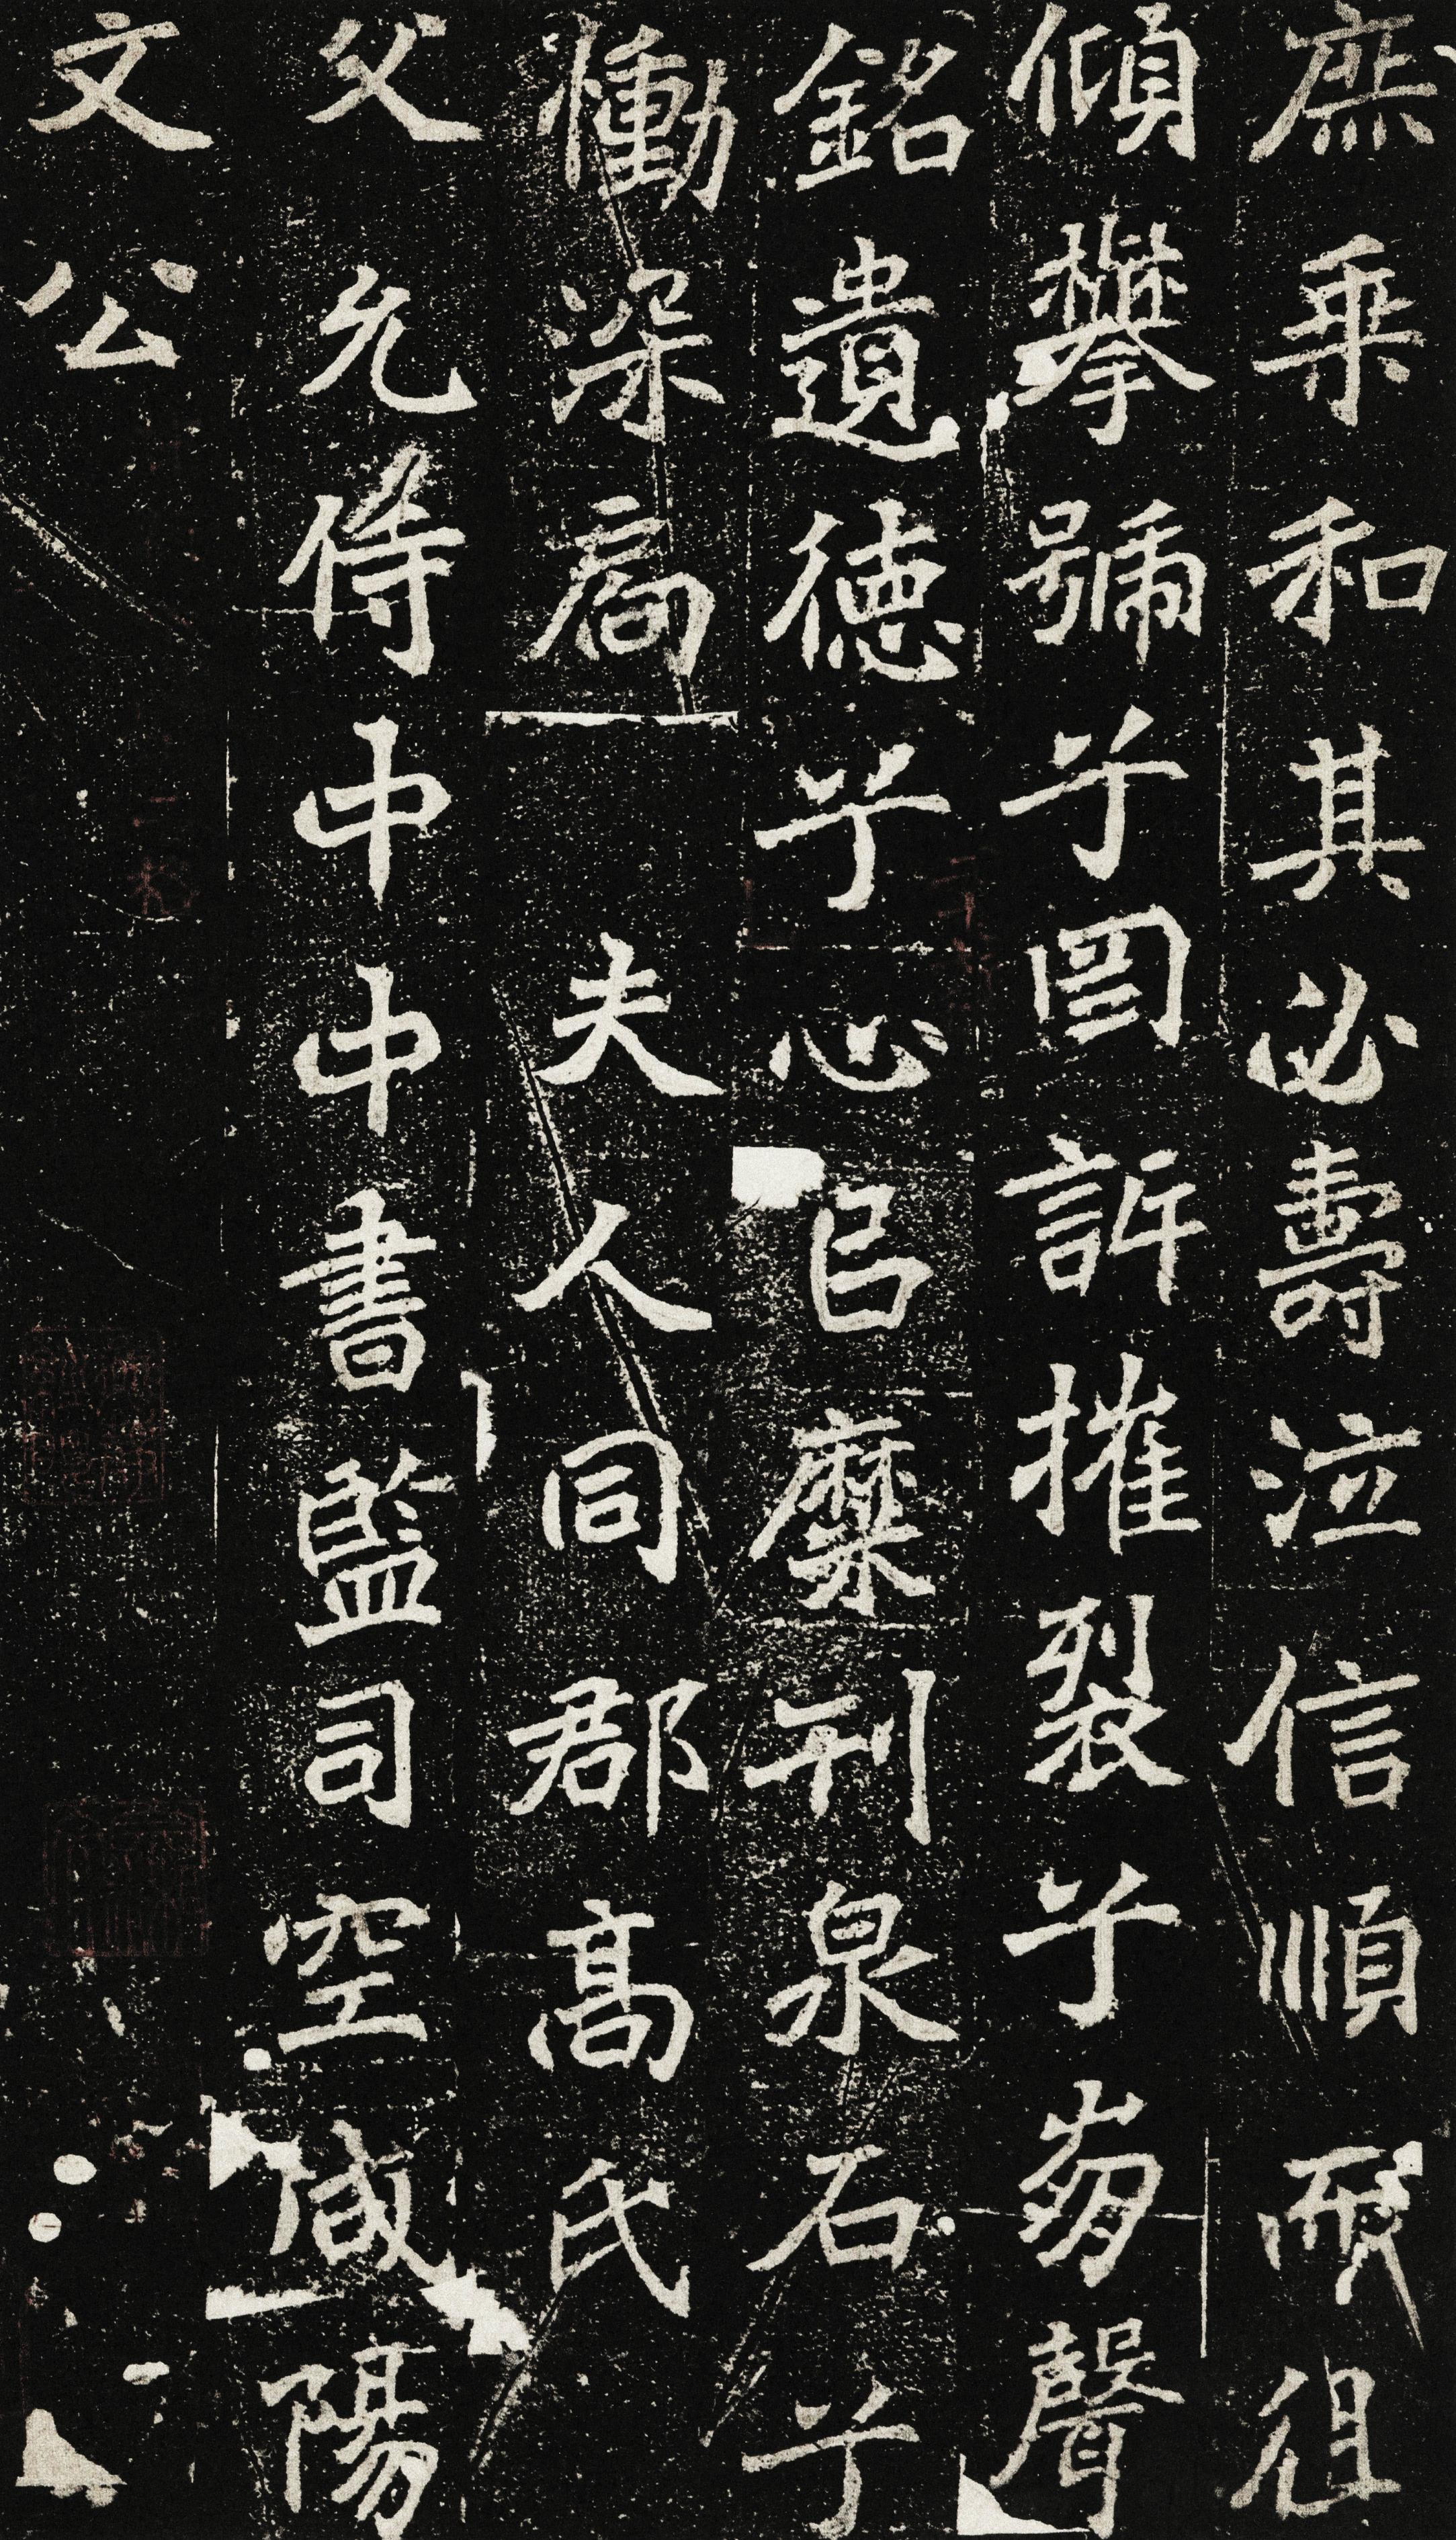 庶乘和其必壽泣信順而徂
傾攀號兮罔訴摧裂兮崩聲
銘遺德兮心已糜刊泉石兮
慟深扃　夫人同郡高氏
父允侍中中書監司空咸陽
文公